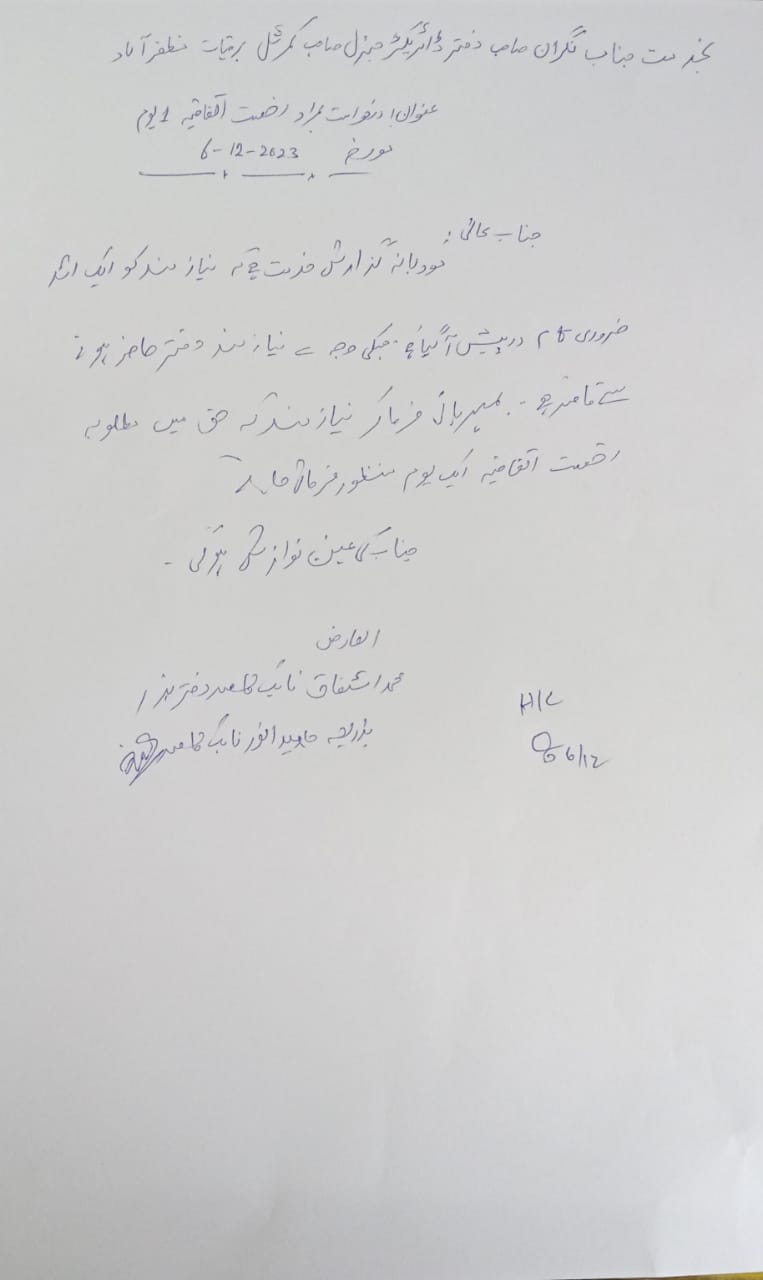 بخدمت جناب نگران صاحب دفتر ڈائریکٹر جنرل صاحب کمرشل برقیات مظفرآباد
عنوان: درخواست بمراد رخصت اتفاقیہ 1 یوم
مورخہ 6-12-2023
جناب عالی:
مودبانہ گزارش خدمت ہے کہ نیازمند کو ایک اشد
ضروری کام درپیش آگیا ہے۔ جسکی وجہ سے نیازمند دفتر حاضر ہونے
سے قاصر ہے۔ مہربانی فرما کر نیازمند کے حق میں مطلوبہ
رخصت اتفاقیہ ایک یوم منظور فرمائی جائے
جناب کی عین نوازش ہوگی۔
العارض
محمد اشفاق نائب قاصد دفتر ہذا
بذریعہ جاوید انور نائب قاصد
H/C
6/12